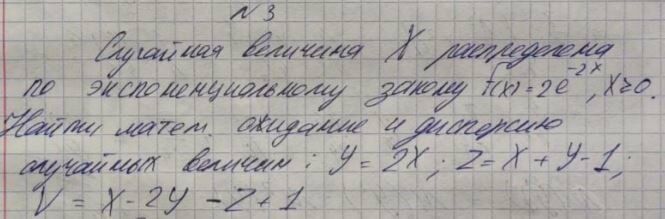 №3
Случайная величина X распределена
по экспоненциальному закону f(x)=2e^{-2x}, x≥0.
Найти матем. ожидание и дисперсию
случайных величин: Y=2X; Z=X+Y-1;
V=X-2Y-Z+1